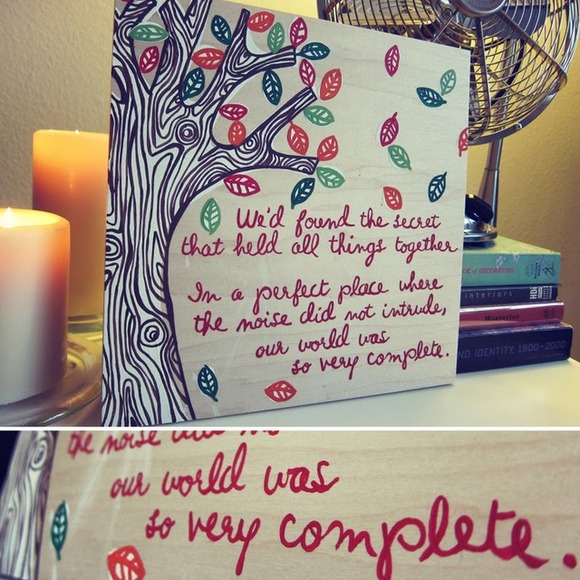 We'd found the secret
that held all things together
In a perfect place where
the noise did not intrude,
our world was
so very complete.
OK OF DECORATING
interiors
ND IDENTITY, 1900-2000
the noise
our world was
so very complete.